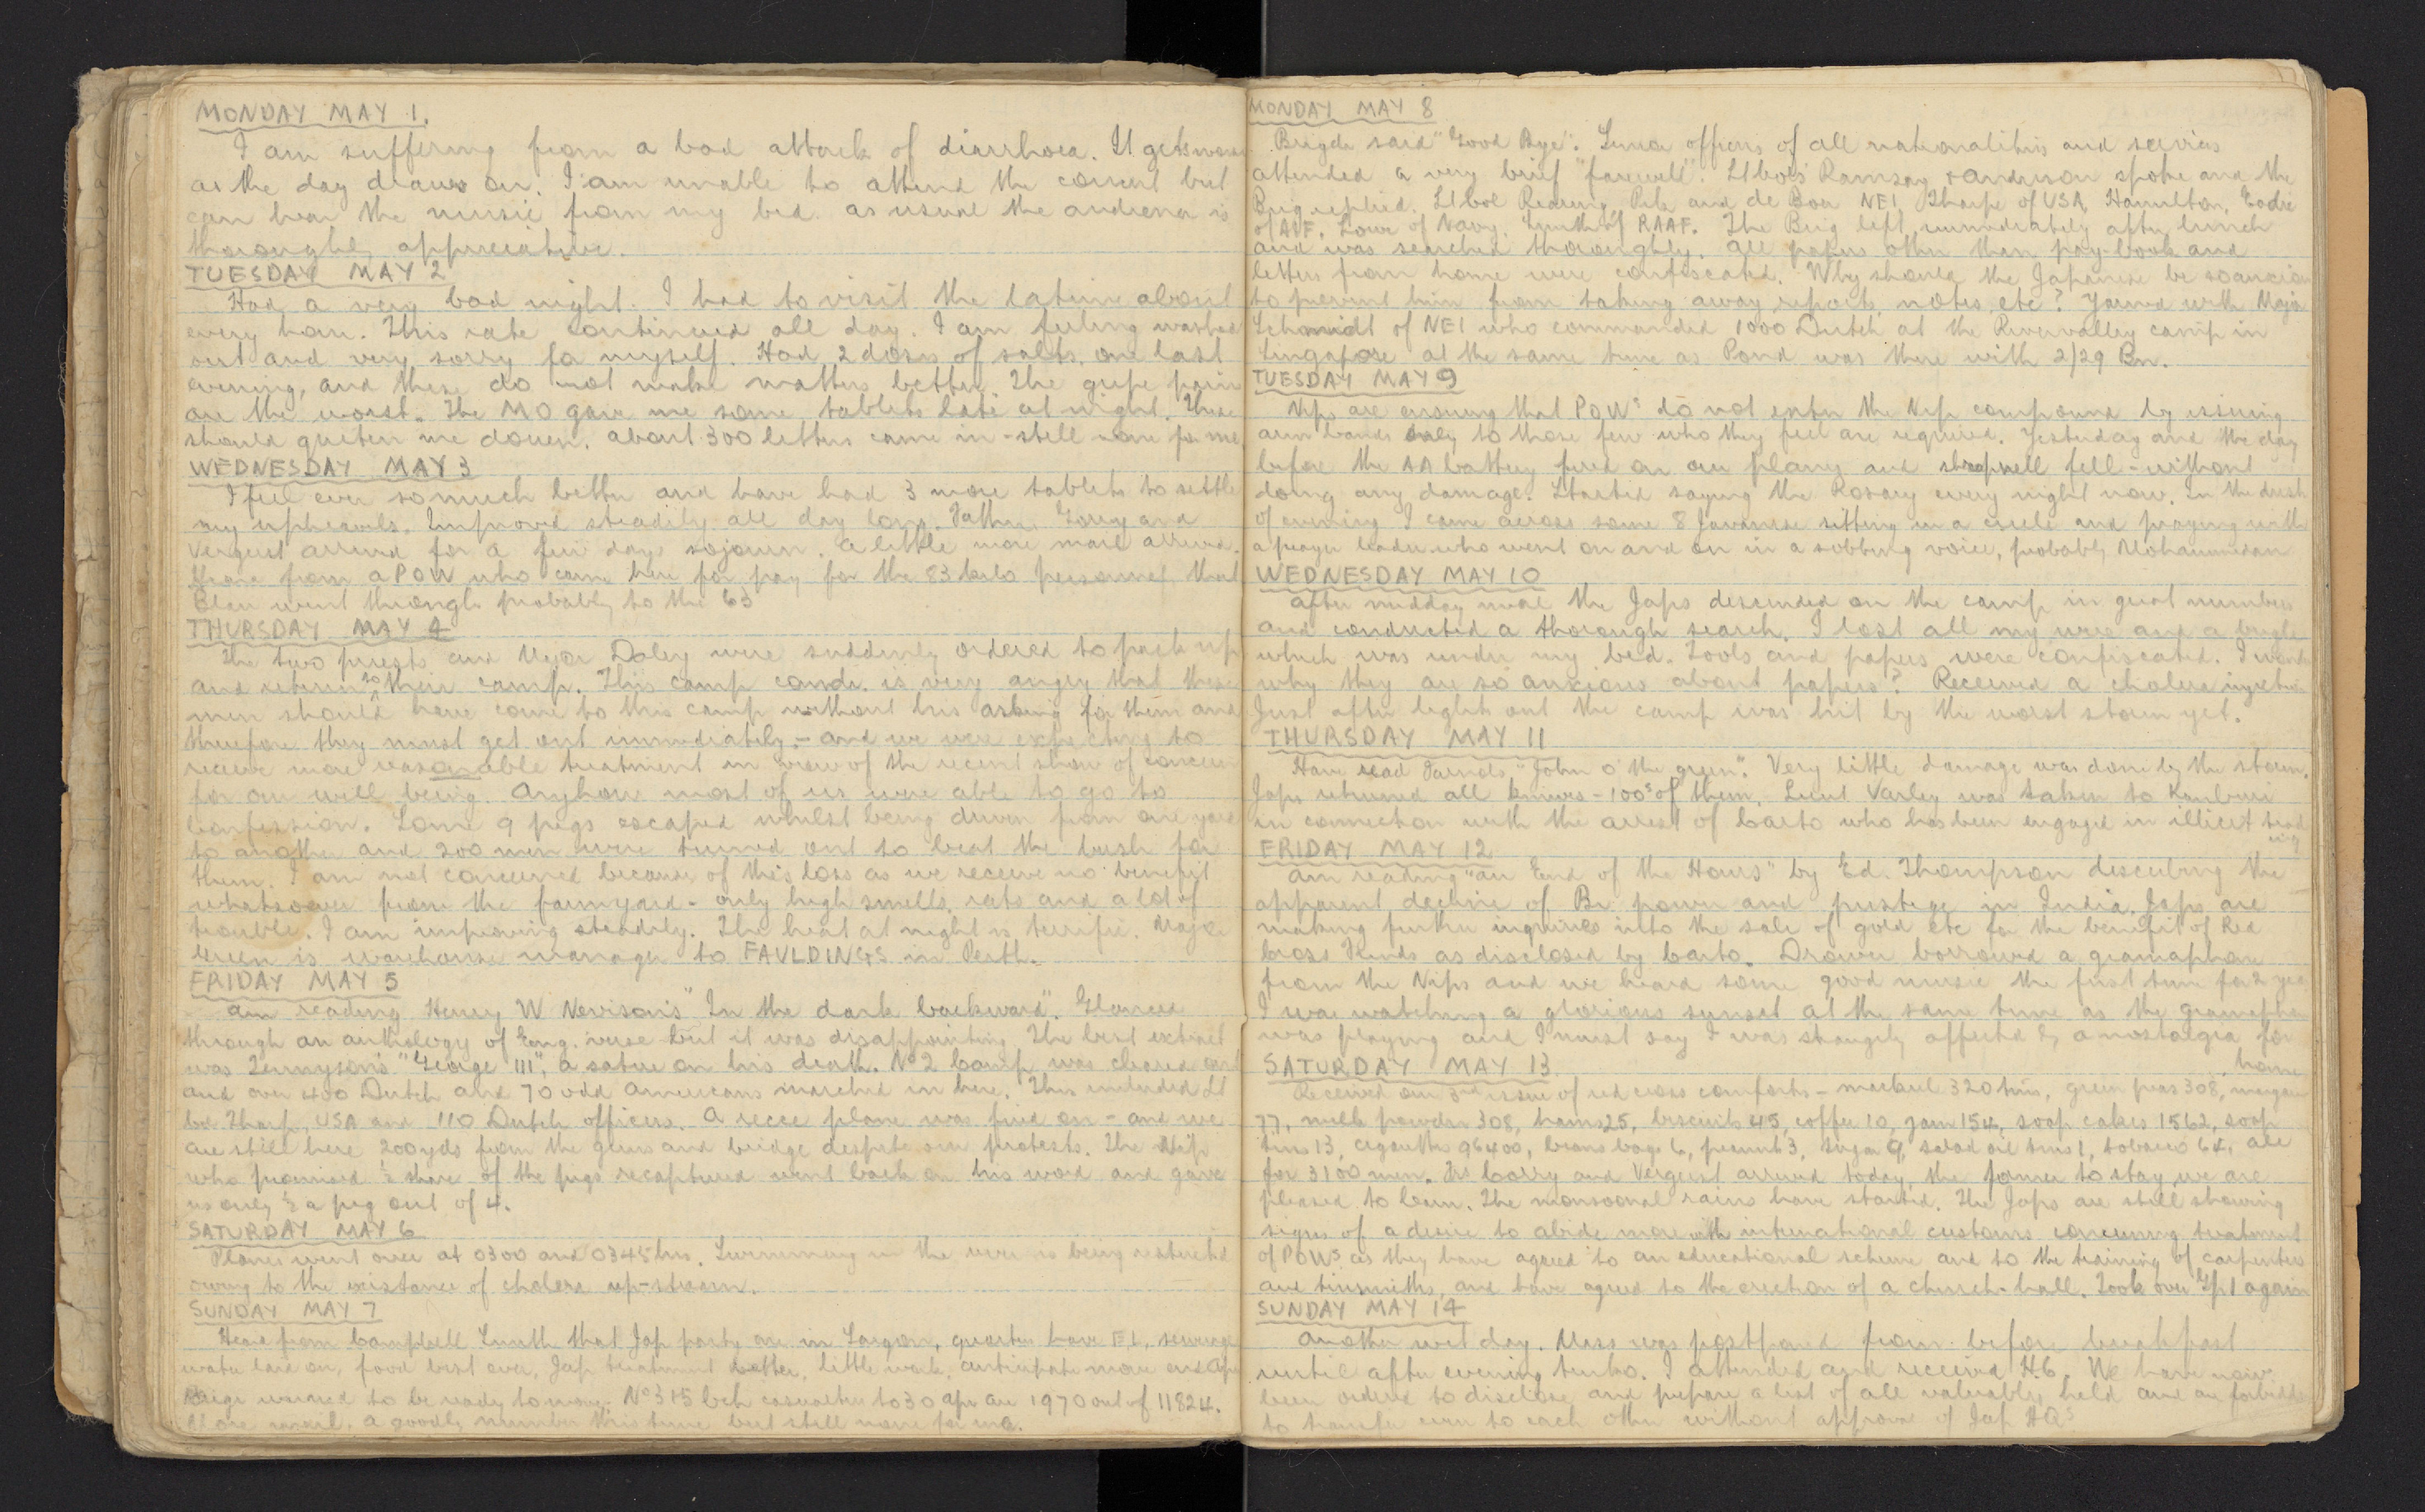 MONDAY MAY 1.
I am suffering from a bad attack of diarrhoea. It gets worse
as the day draws on. I am unable to attend the concert but
can hear the music from my bed. As usual the audience is
thoroughly appreciative.
TUESDAY MAY 2
Had a very bad night. I had to visit the latrine about
every hour. This rate continued all day. I am feeling washed
out and very sorry for myself. Had 2 doses of salts, one last
evening, and these do not make matters better. The gripe pains
are the worst. The MO gave me some tablets late at night. These
should quieten me down. About 300 letters came in - still none for me
WEDNESDAY MAY 3
I feel ever so much better and have had 3 more tablets to settle
my upheavals. Improved steadily all day long. Fathers Corry and
Vergeest arrived for a few days sojourn. A little more mail arrived.
from a POW who came here for pay for the 83 kilo personnel that
went through probably to the 63
THURSDAY MAY 4
The two priests and Major Daley were suddenly ordered to pack up
and return to their camp. This camp comdr. is very angry that these
men should have come to this camp without his asking for them and
therefore they must get out immediately - and we were expecting to
receive more reasonable treatment in view of the recent show of concern
for our well being. Anyhow most of us were able to go to
Confession. Some 9 pigs escaped whilst being driven from one yard
to another and 200 men were turned out to beat the bush for
them. I am not concerned because of this loss as we receive no benefit
whatsoever from the farmyard - only high smells, rats and a lot of
trouble. I am improving steadily. The heat at night is terrific. Major
Green is warehouse manager to FAULDINGS in Perth.
FRIDAY MAY 5
Am reading Henry W Nevison's "In the dark backward". Glanced
through an anthology of Eng. verse but it was disappointing. The best extract
was Tennyson's "George III", a satire on his death. No 2 Camp was cleared out
and over 400 Dutch and 70 odd Americans marched in here. This included Lt
Col Tharp, USA and 110 Dutch officers. A recce plane was fired on - and we
are still here 200yds from the guns and bridge despite our protests. The Nip
who promised ½ share of the pigs recaptured went back on his word and gave
us only ½ a pig out of 4.
SATURDAY MAY 6
Planes went over at 0300 and 0345hrs. Swimming in the river is being restricted
owing to the existance of cholera up-stream.
SUNDAY MAY 7
Hear from Campbell Smith that Jap party are in Saigon, quarters have EL, sewerage
water laid on, food best ever, Jap treatment better, little work, anticipate move end Apr
Brige warned to be ready to move. No 3 + 5 bch casualties to 30 Apr are 1970 out of 11824.
more mail. A goodly number this time but still none for me.
MONDAY MAY 8
Brigde said "Good Bye". Senior officers of all nationalities and services
attended a very brief "farewell". Lt Cols Ramsay & Anderson spoke and the
Brig replied. Lt Col Rearing, Pik and de Boer NEI Tharp of USA, Hamilton, Eadie
of AIF, Lowe of Navy, Smith of RAAF. The Brig left immediately after lunch
and was searched thoroughly. All papers other than pay-book and
letters from home were confiscated. Why should the Japanese be so anxious
to prevent him from taking away reports, notes, etc? Yarned with Major
Schmidt of NEI who commanded 1000 Dutch at the Rivervalley camp in
Singapore at the same time as Pond was there with 2/29 Bn.
TUESDAY MAY 9
Nips are ensuring that POWs do not enter the Nip compound by issuing
arm bands only to those few who they feel are required. Yesterday and the day
before the AA battery fired on our planes and shrapnell fell - without
doing any damage. Started saying the Rosary every night now. In the dusk
of evening I came across some 8 Javanese sitting in a circle and praying with
a prayer leader who went on and on in a sobbing voice, probably Mohammedan
WEDNESDAY MAY 10
After midday meal the Japs descended on the camp in great numbers
and conducted a thorough search. I lost all my wire and a bugle
which was under my bed. Tools and papers were confiscated. I wonder
why they are so anxious about papers? Received a cholera injection
Just after lights out the camp was hit by the worst storm yet.
THURSDAY MAY 11
Have read "John o' the green". Very little damage was done by the storm.
Japs returned all knives - 100s of them. Lieut Varley was taken to Kanburi
in connection with the arrest of Carto who has been engaged in illicit trad
ing
FRIDAY MAY 12
Am reading "An End of the Hours" by Ed. Thompson describing the
apparent decline of Br power and prestige in India. Japs are
making further inquiries into the sale of gold etc for the benefit of Red
Cross Funds as disclosed by Carto. Drower borrowed a gramaphone
from the Nips and we heard some good music the first time for 2 yrs
I was watching a glorious sunset at the same time as the gramophone
was playing and I must say I was strangely affected by a nostalgia for
home
SATURDAY MAY 13.
Received our 3rd issue of red cross comforts - mackerel 320 tins, green peas 308, margarine
77, milk powder 308, hams 25, biscuits 45, coffee 10, jam 154, soap cakes 1562, soap
tins 13, cigarettes 96400, beans bags 6, peanuts 3, sugar 9, salad oil tins 1, tobacco 64, all
for 3100 men. Frs Corry and Vergeest arrived today, the former to stay, we are
pleased to learn. The monsoonal rains have started. The Japs are still showing
signs of a desire to abide more with international customs concerning treatment
of POWs as they have agreed to an educational scheme and to the training of carpenters
and tinsmiths, and have agreed to the erection of a church-hall. Took over Gp 1 again
SUNDAY MAY 14
Another wet day. Mass was postponed from before breakfast
until after evening tenko. I attended and received H.C. We have now
been ordered to disclose and prepare a list of all valuables held and are forbidden
to transfer even to each other without approval of Jap HQs